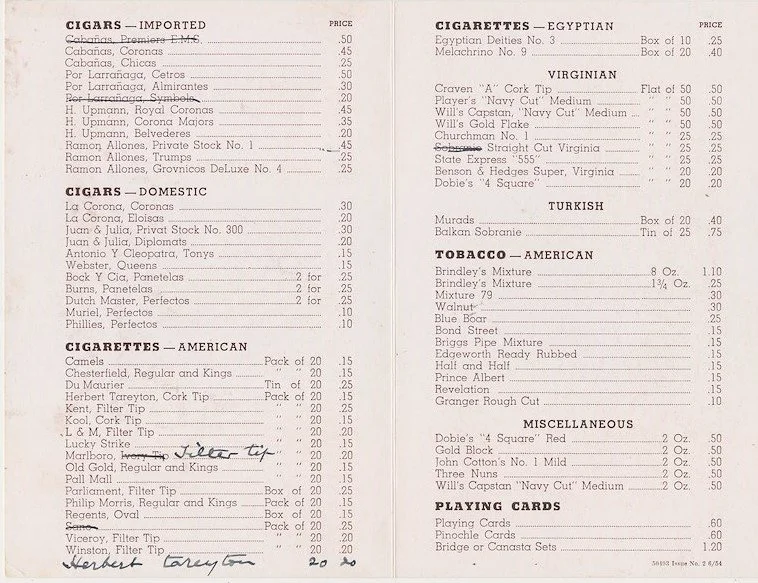 CIGARS — IMPORTED PRICE
Cabañas, Premiers E.M.S. .50
Cabañas, Coronas .45
Cabañas, Chicas .25
Por Larrañaga, Cetros .50
Por Larrañaga, Almirantes .30
Por Larrañaga, Symbols .20
H. Upmann, Royal Coronas .45
H. Upmann, Corona Majors .35
H. Upmann, Belvederes .20
Ramon Allones, Private Stock No. 1 .45
Ramon Allones, Trumps .25
Ramon Allones, Grovnicos DeLuxe No. 4 .25
CIGARS — DOMESTIC
La Corona, Coronas .30
La Corona, Eloisas .20
Juan & Julia, Privat Stock No. 300 .30
Juan & Julia, Diplomats .20
Antonio Y Cleopatra, Tonys .15
Webster, Queens .15
Bock Y Cia, Panetelas 2 for .25
Burns, Panetelas 2 for .25
Dutch Master, Perfectos 2 for .25
Muriel, Perfectos .10
Phillies, Perfectos .10
CIGARETTES — AMERICAN
Camels Pack of 20 .15
Chesterfield, Regular and Kings " " 20 .15
Du Maurier Tin of 20 .25
Herbert Tareyton, Cork Tip Pack of 20 .15
Kent, Filter Tip " " 20 .25
Kool, Cork Tip " " 20 .15
L & M, Filter Tip " " 20 .20
Lucky Strike " " 20 .15
Marlboro, Ivory Tip Filter tip " " 20 .20
Old Gold, Regular and Kings " " 20 .15
Pall Mall " " 20 .15
Parliament, Filter Tip Box of 20 .25
Philip Morris, Regular and Kings Pack of 20 .15
Regents, Oval Box of 20 .15
Sano Pack of 20 .25
Viceroy, Filter Tip " " 20 .20
Winston, Filter Tip " " 20 .20
Herbert tareyton 20 20
CIGARETTES — EGYPTIAN PRICE
Egyptian Deities No. 3 Box of 10 .25
Melachrino No. 9 Box of 20 .40
VIRGINIAN
Craven "A" Cork Tip Flat of 50 .50
Player's "Navy Cut" Medium " " 50 .50
Will's Capstan, "Navy Cut" Medium " " 50 .50
Will's Gold Flake " " 50 .50
Churchman No. 1 " " 25 .25
Sobranie Straight Cut Virginia " " 25 .25
State Express "555" " " 25 .25
Benson & Hedges Super, Virginia " " 20 .20
Dobie's "4 Square" " " 20 .20
TURKISH
Murads Box of 20 .40
Balkan Sobranie Tin of 25 .75
TOBACCO — AMERICAN
Brindley's Mixture 8 Oz. 1.10
Brindley's Mixture 1¾ Oz. .25
Mixture 79 .30
Walnut .30
Blue Boar .25
Bond Street .15
Briggs Pipe Mixture .15
Edgeworth Ready Rubbed .15
Half and Half .15
Prince Albert .15
Revelation .15
Granger Rough Cut .10
MISCELLANEOUS
Dobie's "4 Square" Red 2 Oz. .50
Gold Block 2 Oz. .50
John Cotton's No. 1 Mild 2 Oz. .50
Three Nuns 2 Oz. .50
Will's Capstan "Navy Cut" Medium 2 Oz. .50
PLAYING CARDS
Playing Cards .60
Pinochle Cards .60
Bridge or Canasta Sets 1.20
50493 Issue No. 2 6/54